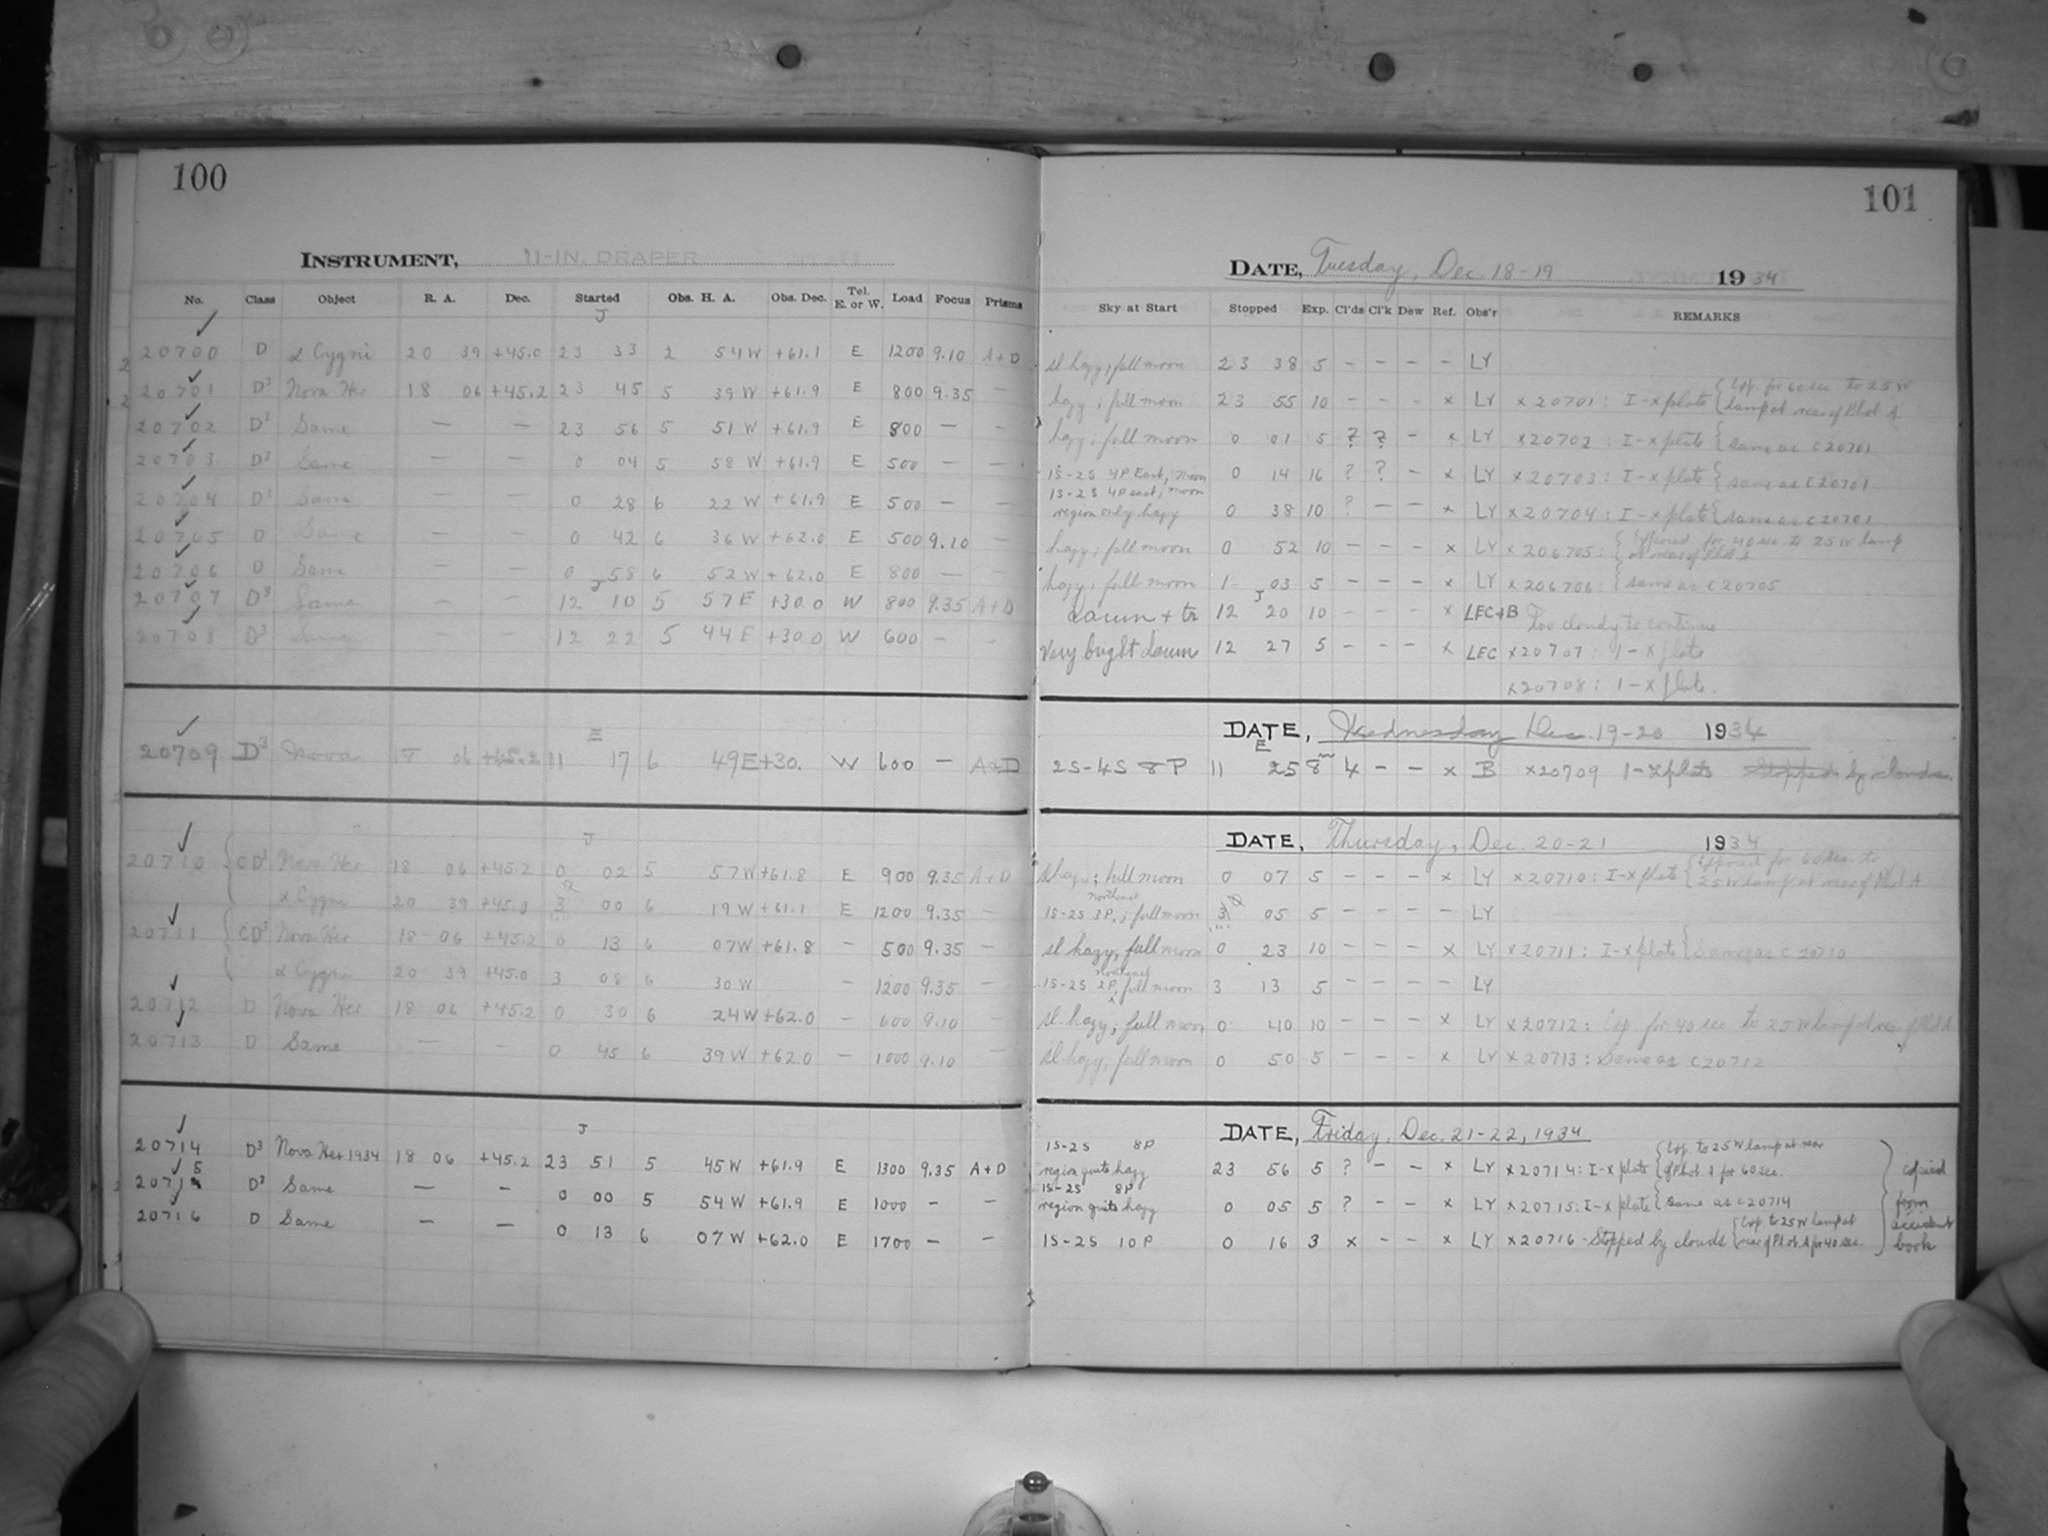 100
INSTRUMENT, 11-IN. DRAPER
No. Class Object R. A. Dec. Started Obs. H. A. Obs. Dec. Tel. E. or W. Load Focus Prisms
J
20700 D α Cygni 20 39 +45.0 23 33 2 54 W +61.1 E 1200 9.10 A+D
20701 D³ Nova Her 18 06 +45.2 23 45 5 39 W +61.9 E 800 9.35 —
20702 D³ Same — — 23 56 5 51 W +61.9 E 800 — —
20703 D³ Same — — 0 04 5 58 W +61.9 E 500 — —
20704 D² Same — — 0 28 6 22 W +61.9 E 500 — —
20705 D Same — — 0 42 6 36 W +62.0 E 500 9.10 —
20706 D Same — — 0 58 6 52 W +62.0 E 800 — —
J
20707 D³ Same — — 12 10 5 57 E +30.0 W 800 9.35 A+D
20708 D³ Same — — 12 22 5 44 E +30.0 W 600 — —
E
20709 D³ Nova 18 06 +45.2 11 17 6 49 E +30. W 600 — A+D
J
20710 CD³ Nova Her 18 06 +45.2 0 02 5 57 W +61.8 E 900 9.35 A+D
α Cygni 20 39 +45.0 3 00 6 19 W +61.1 E 1200 9.35 —
20711 CD³ Nova Her 18 06 +45.2 0 13 6 07 W +61.8 — 500 9.35 —
α Cygni 20 39 +45.0 3 08 6 30 W — 1200 9.35 —
20712 D Nova Her 18 06 +45.2 0 30 6 24 W +62.0 — 600 9.10 —
20713 D Same — — 0 45 6 39 W +62.0 — 1000 9.10 —
J
20714 D³ Nova Her 1934 18 06 +45.2 23 51 5 45 W +61.9 E 1300 9.35 A+D
20715 D² Same — — 0 00 5 54 W +61.9 E 1000 — —
20716 D Same — — 0 13 6 07 W +62.0 E 1700 — —
101
DATE, Tuesday, Dec. 18-19 1934
Sky at Start Stopped Exp. Cl'ds Cl'k Dew Ref. Obs'r REMARKS
sl hazy; full moon 23 38 5 — — — — LY
hazy; full moon 23 55 10 — — - x LY x 20701: I-x plate { Exp. for 60 sec. to 25 W
lamp at rear of Phot A
hazy; full moon 0 01 5 ? ? — x LY x20702: I-x plate { same as C20701
1S-2S 4P East; moon 0 14 16 ? ? — x LY x 20703: I-x plate { same as C20701
1S-2S 4P east; moon
region only hazy 0 38 10 ? — — x LY x20704: I-x plate { same as C20701
hazy; full moon 0 52 10 — — — x LY x 206705: { Exposed for 40 sec. to 25 W lamp
at rear of Phot. A
hazy; full moon 1 03 5 — — — x LY x 206706: { same as C20705
J
dawn + tr 12 20 10 — — — x LEC+B Too cloudy to continue
very bright dawn 12 27 5 — — — x LEC x20707: I-x plate
x20708: I-x plate.
DATE, Wednesday Dec. 19-20 1934
E
2S-4S 8P 11 25 8 4 — — x B x20709 I-x plate Stopped by clouds.
DATE, Thursday, Dec. 20-21 1934
sl hazy; full moon 0 07 5 — — — x LY x 20710: I-x plate { Exposed for 60 sec. to
25 W lamp at rear of Phot A
northeast
1S-2S 3P; full moon 3 05 5 — — — — LY
sl hazy, full moon 0 23 10 — — — x LY x20711: I-x plate { Same as C 20710
northeast
1S-2S 2P, full moon 3 13 5 — — — — LY
sl. hazy; full moon 0 40 10 — — — x LY x20712: Exp. for 40 sec. to 25 W lamp at rear of Phot A
sl hazy; full moon 0 50 5 — — — x LY x20713: Same as C20712
DATE, Friday, Dec. 21-22, 1934
1S-2S 8P
region quite hazy 23 56 5 ? — — x LY x20714: I-x plate { Exp. to 25 W lamp at rear
of Phot. A for 60 sec.
1S-2S 8P
region quite hazy 0 05 5 ? — — x LY x20715: I-x plate { same as C20714
1S-2S 10P 0 16 3 x — — x LY x20716 - Stopped by clouds { Exp. to 25 W lamp at
rear of Phot. A for 40 sec.
copied
from
accident
book